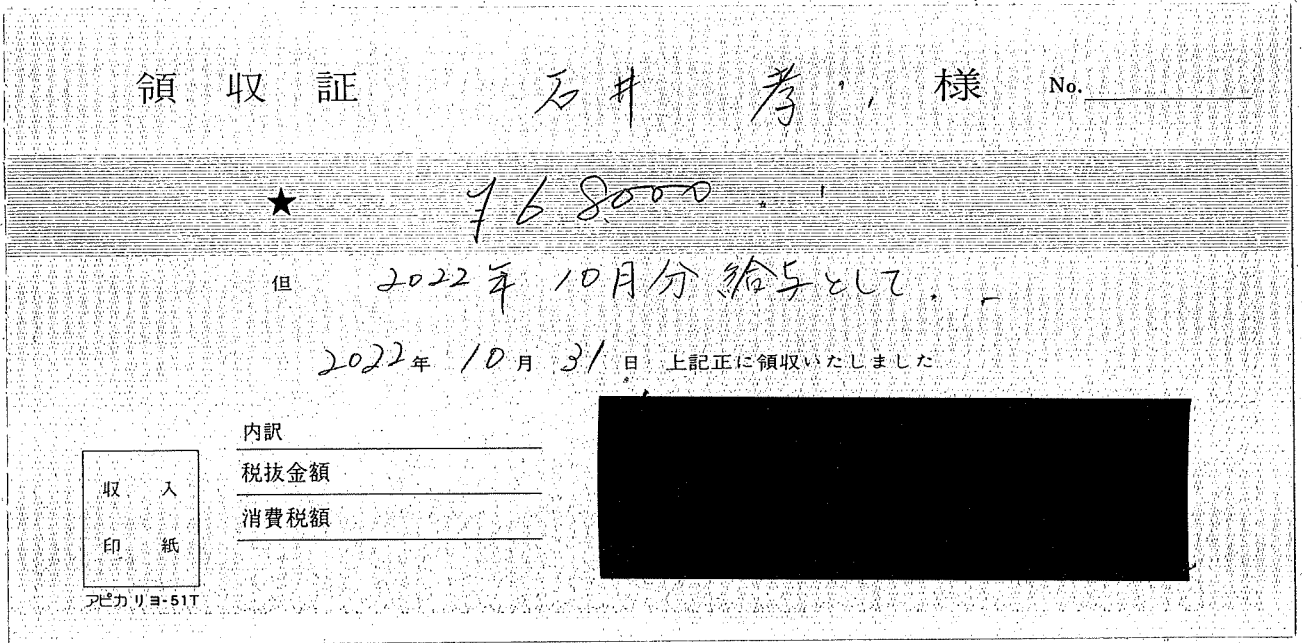 領収証 石井 孝 様 No.
★ ¥68000
但 2022年 10月分 給与として.
2022年 10月 31日 上記正に領収いたしました
内訳
税抜金額
消費税額
収入
印紙
アピカ リヨ-51T